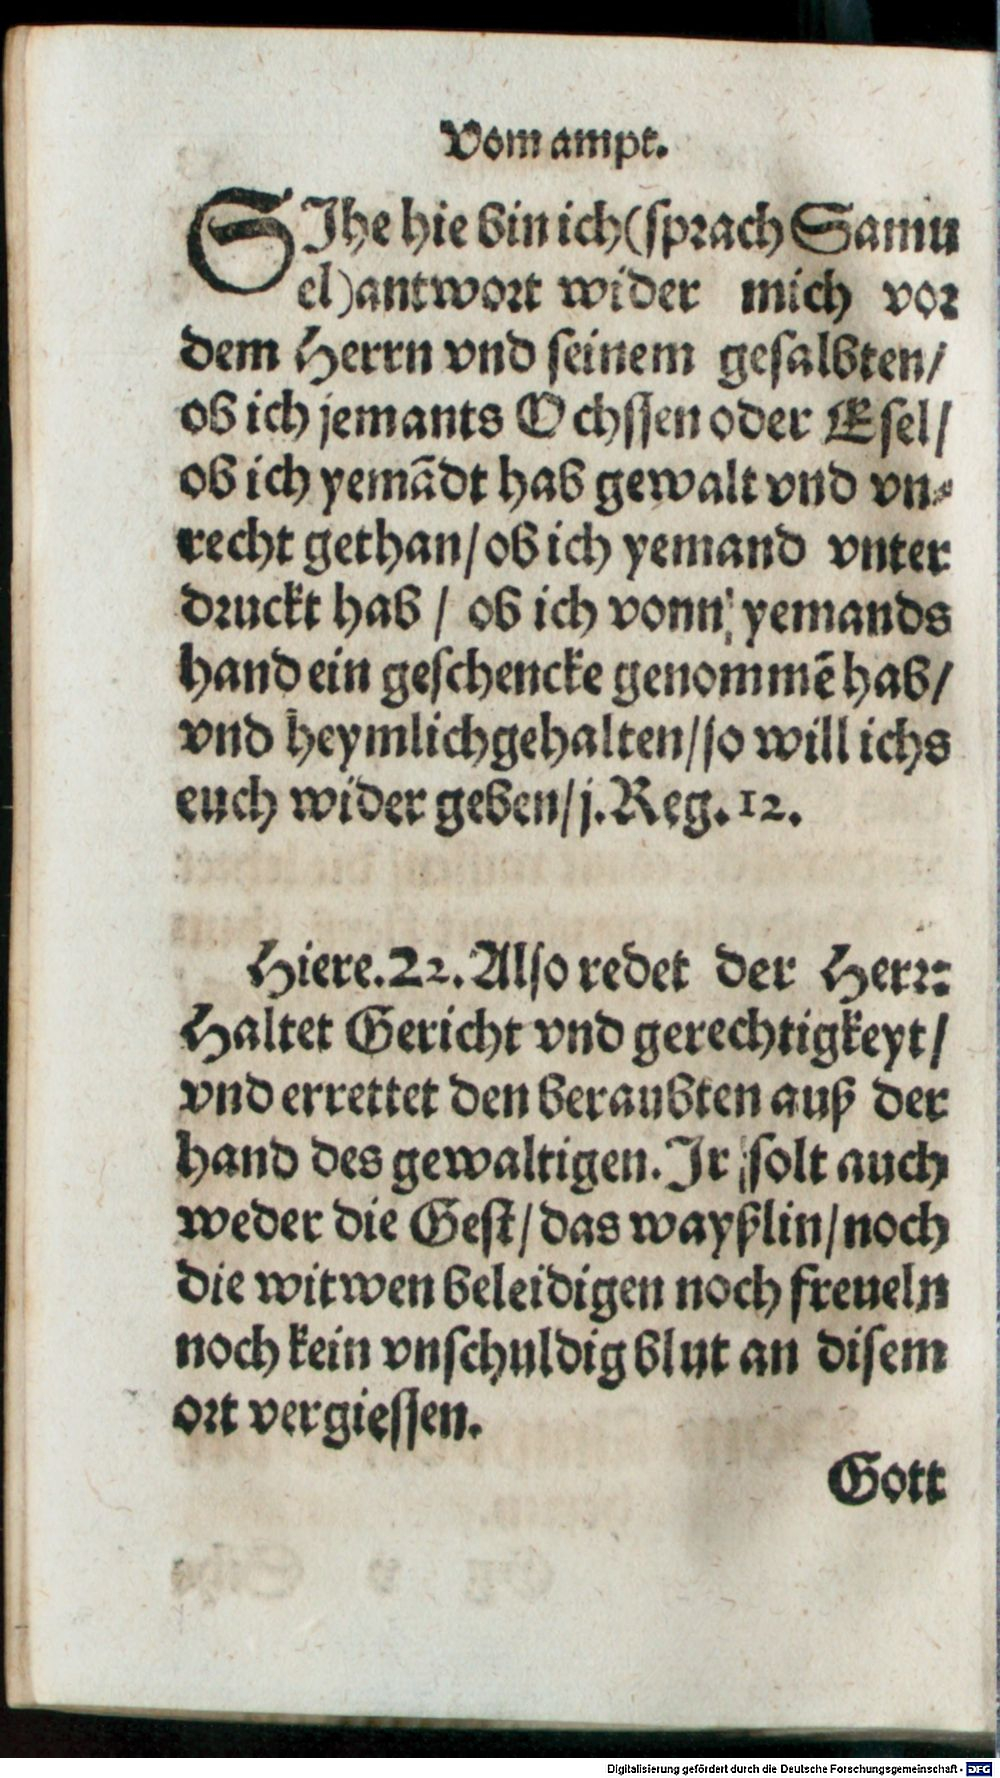 Vom ampt.
SIhe hie bin ich (sprach Samu
el) antwort wider mich vor
dem Herrn vnd seinem gesalbten/
ob ich jemants Ochssen oder Esel/
ob ich yemādt hab gewalt vnd vn⸗
recht gethan/ ob ich yemand vnter
druckt hab / ob ich vonn yemands
hand ein geschencke genommē hab/
vnd heymlich gehalten/ so will ichs
euch wider geben/ j. Reg. 12.
Hiere. 22. Also redet der Herr:
Haltet Gericht vnd gerechtigkeyt/
vnd errettet den beraubten auß der
hand des gewaltigen. Ir solt auch
weder die Gest/ das wayßlin/ noch
die witwen beleidigen noch freueln
noch kein vnschuldig blut an disem
ort vergiessen.
Gott
Digitalisierung gefördert durch die Deutsche Forschungsgemeinschaft - DFG